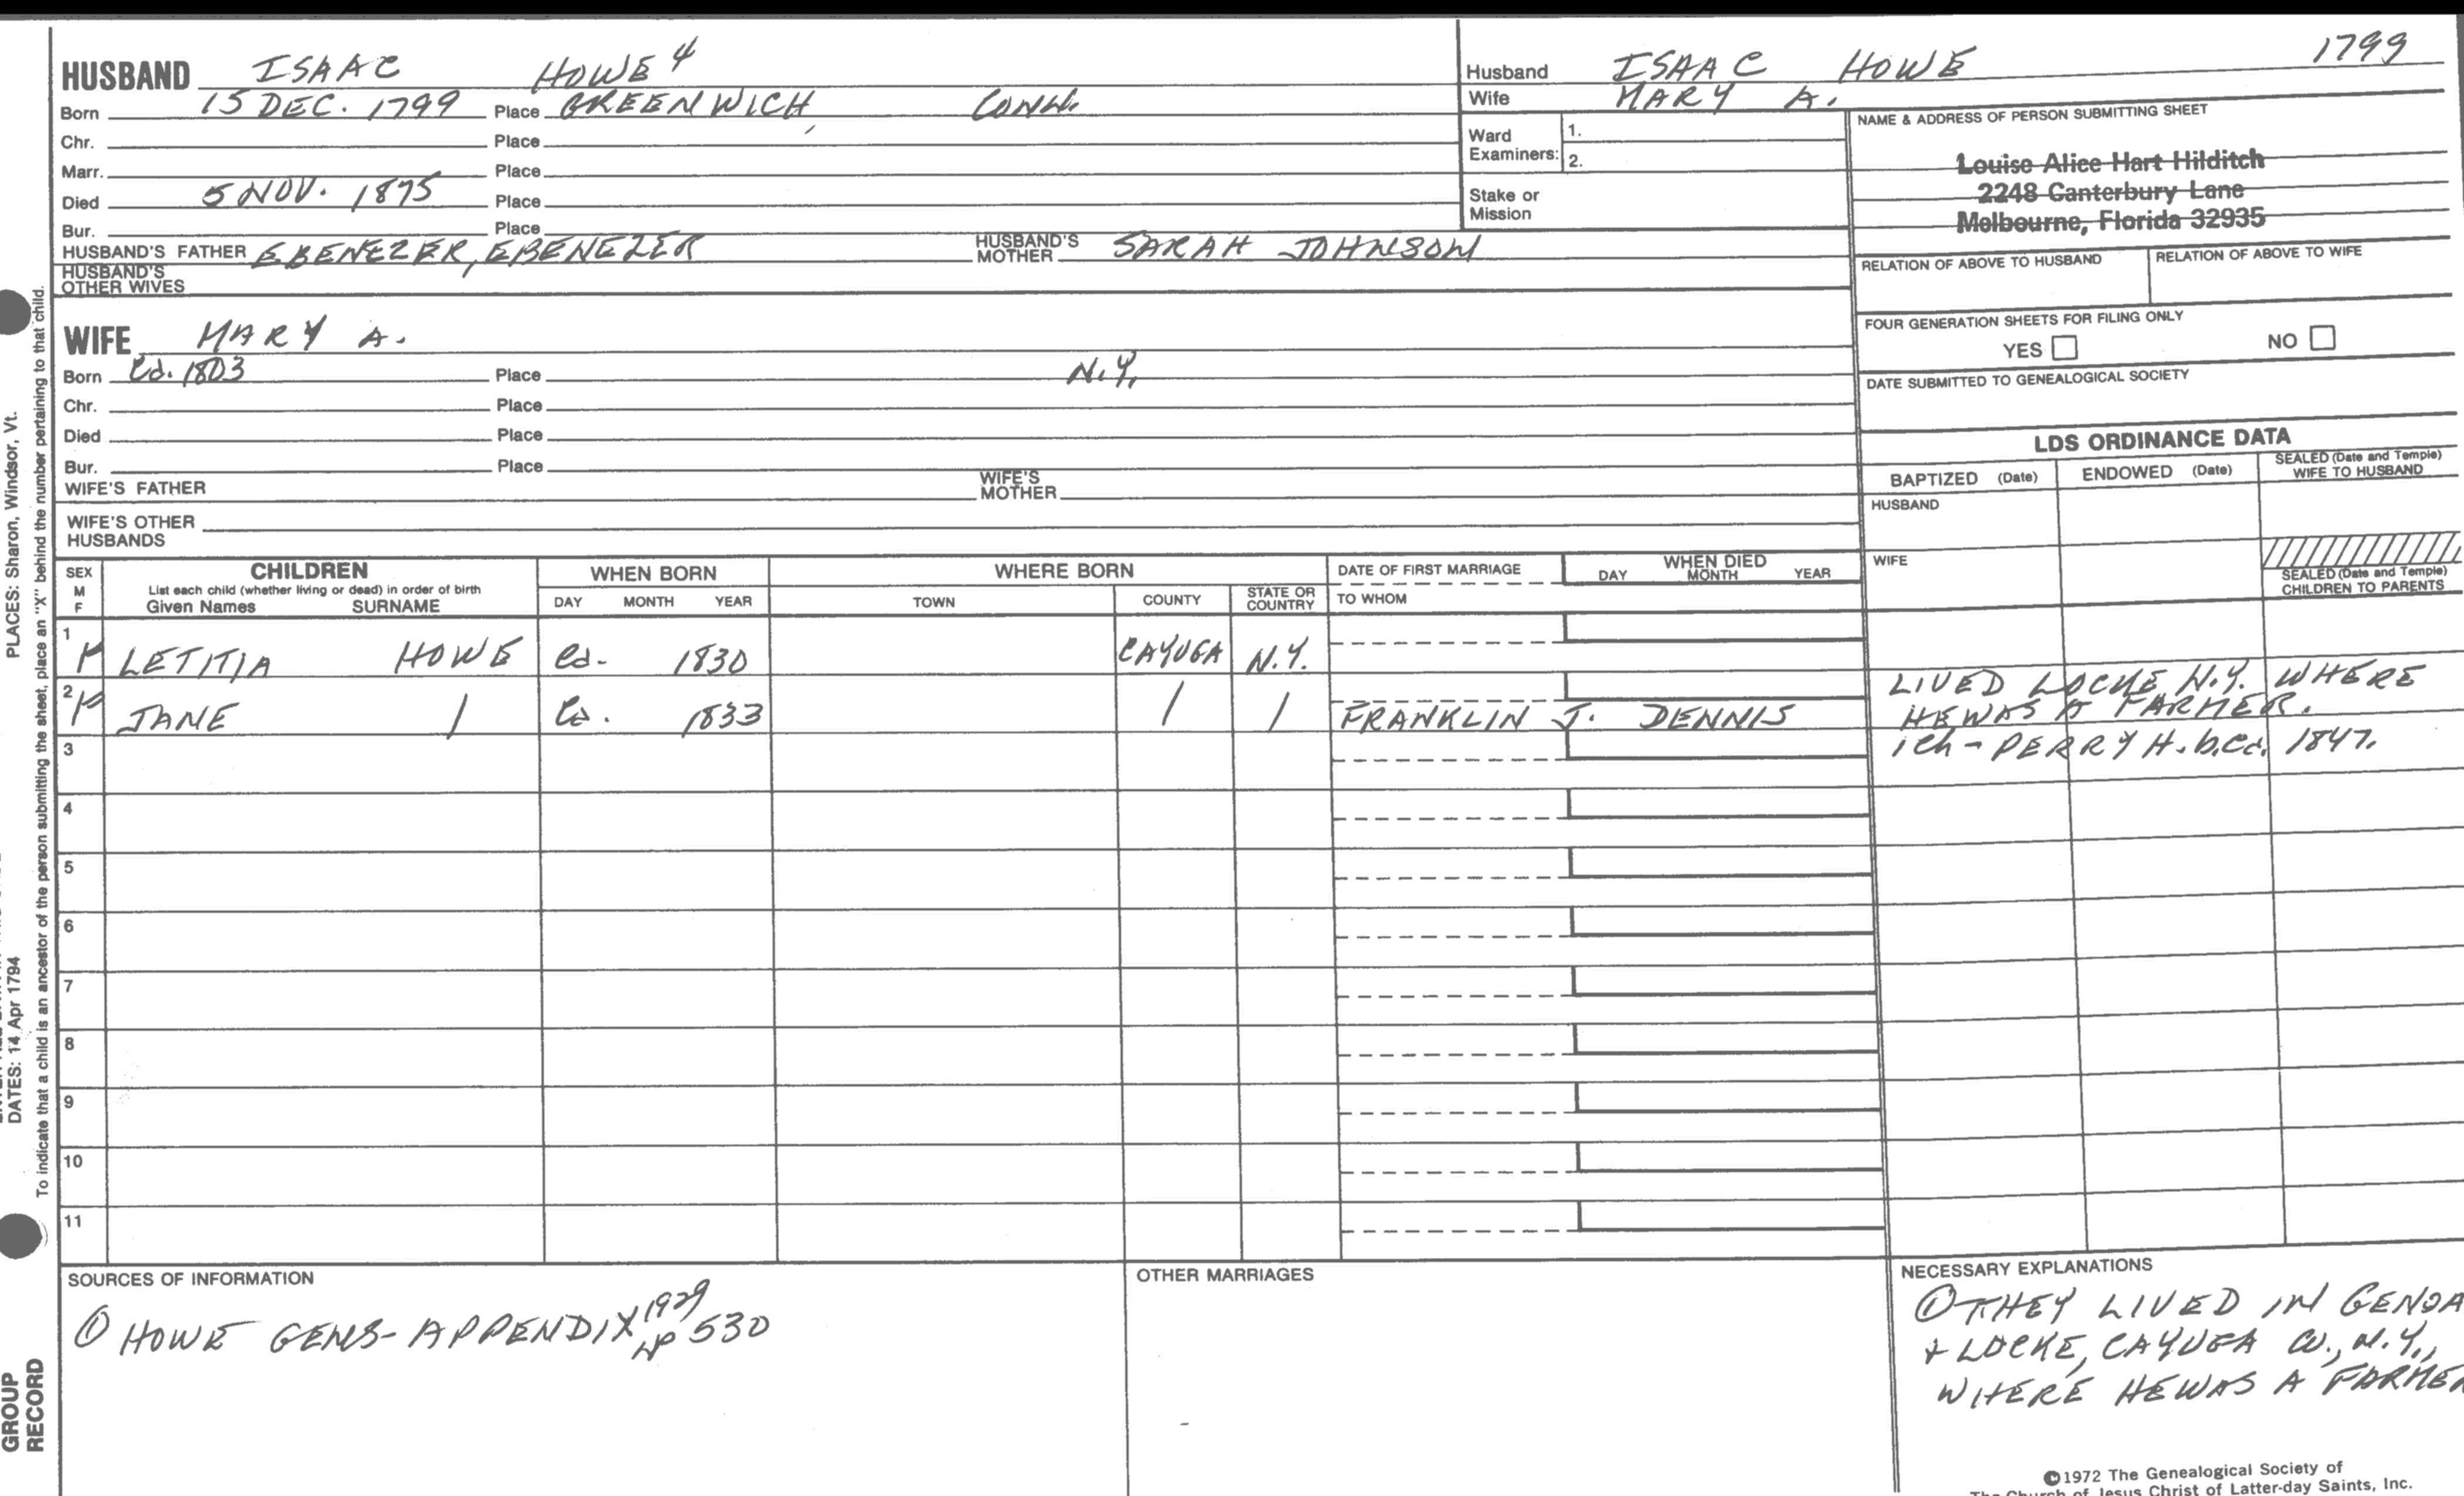 HUSBAND ISAAC HOWE 4
Born 15 DEC. 1799 Place GREENWICH, CONN.
Chr. Place
Marr. Place
Died 5 NOV. 1875 Place
Bur. Place
HUSBAND'S FATHER EBENEZER, EBENEZER HUSBAND'S MOTHER SARAH JOHNSON
HUSBAND'S
OTHER WIVES
WIFE MARY A.
Born Ca. 1803 Place N.Y.
Chr. Place
Died Place
Bur. Place
WIFE'S FATHER WIFE'S MOTHER
WIFE'S OTHER
HUSBANDS
Husband ISAAC HOWE 1799
Wife MARY A.
Ward
Examiners: 1.
2.
Stake or
Mission
NAME & ADDRESS OF PERSON SUBMITTING SHEET
Louise Alice Hart Hilditch
2248 Canterbury Lane
Melbourne, Florida 32935
RELATION OF ABOVE TO HUSBAND RELATION OF ABOVE TO WIFE
FOUR GENERATION SHEETS FOR FILING ONLY
YES NO
DATE SUBMITTED TO GENEALOGICAL SOCIETY
LDS ORDINANCE DATA
BAPTIZED (Date) ENDOWED (Date) SEALED (Date and Temple)
WIFE TO HUSBAND
HUSBAND
WIFE
SEALED (Date and Temple)
CHILDREN TO PARENTS
SEX
M
F
CHILDREN
List each child (whether living or dead) in order of birth
Given Names SURNAME
WHEN BORN
DAY MONTH YEAR
WHERE BORN
TOWN COUNTY STATE OR
COUNTRY
DATE OF FIRST MARRIAGE
TO WHOM
WHEN DIED
DAY MONTH YEAR
1 F LETITIA HOWE Ca. 1830 CAYUGA N.Y.
2 F JANE / Ca. 1833 / / FRANKLIN J. DENNIS
3
4
5
6
7
8
9
10
11
LIVED LOCKE N.Y. WHERE
HE WAS A FARMER.
1 ch - PERRY H. b.Ca. 1847.
SOURCES OF INFORMATION
① HOWE GENS- APPENDIX 1929 P 530
OTHER MARRIAGES
NECESSARY EXPLANATIONS
① THEY LIVED IN GENOA
+ LOCKE, CAYUGA CO., N.Y.,
WHERE HE WAS A FARMER
©1972 The Genealogical Society of
The Church of Jesus Christ of Latter-day Saints, Inc.
PLACES: Sharon, Windsor, Vt.
DATES: 14 Apr 1794
To indicate that a child is an ancestor of the person submitting the sheet, place an "X" behind the number pertaining to that child.
GROUP
RECORD